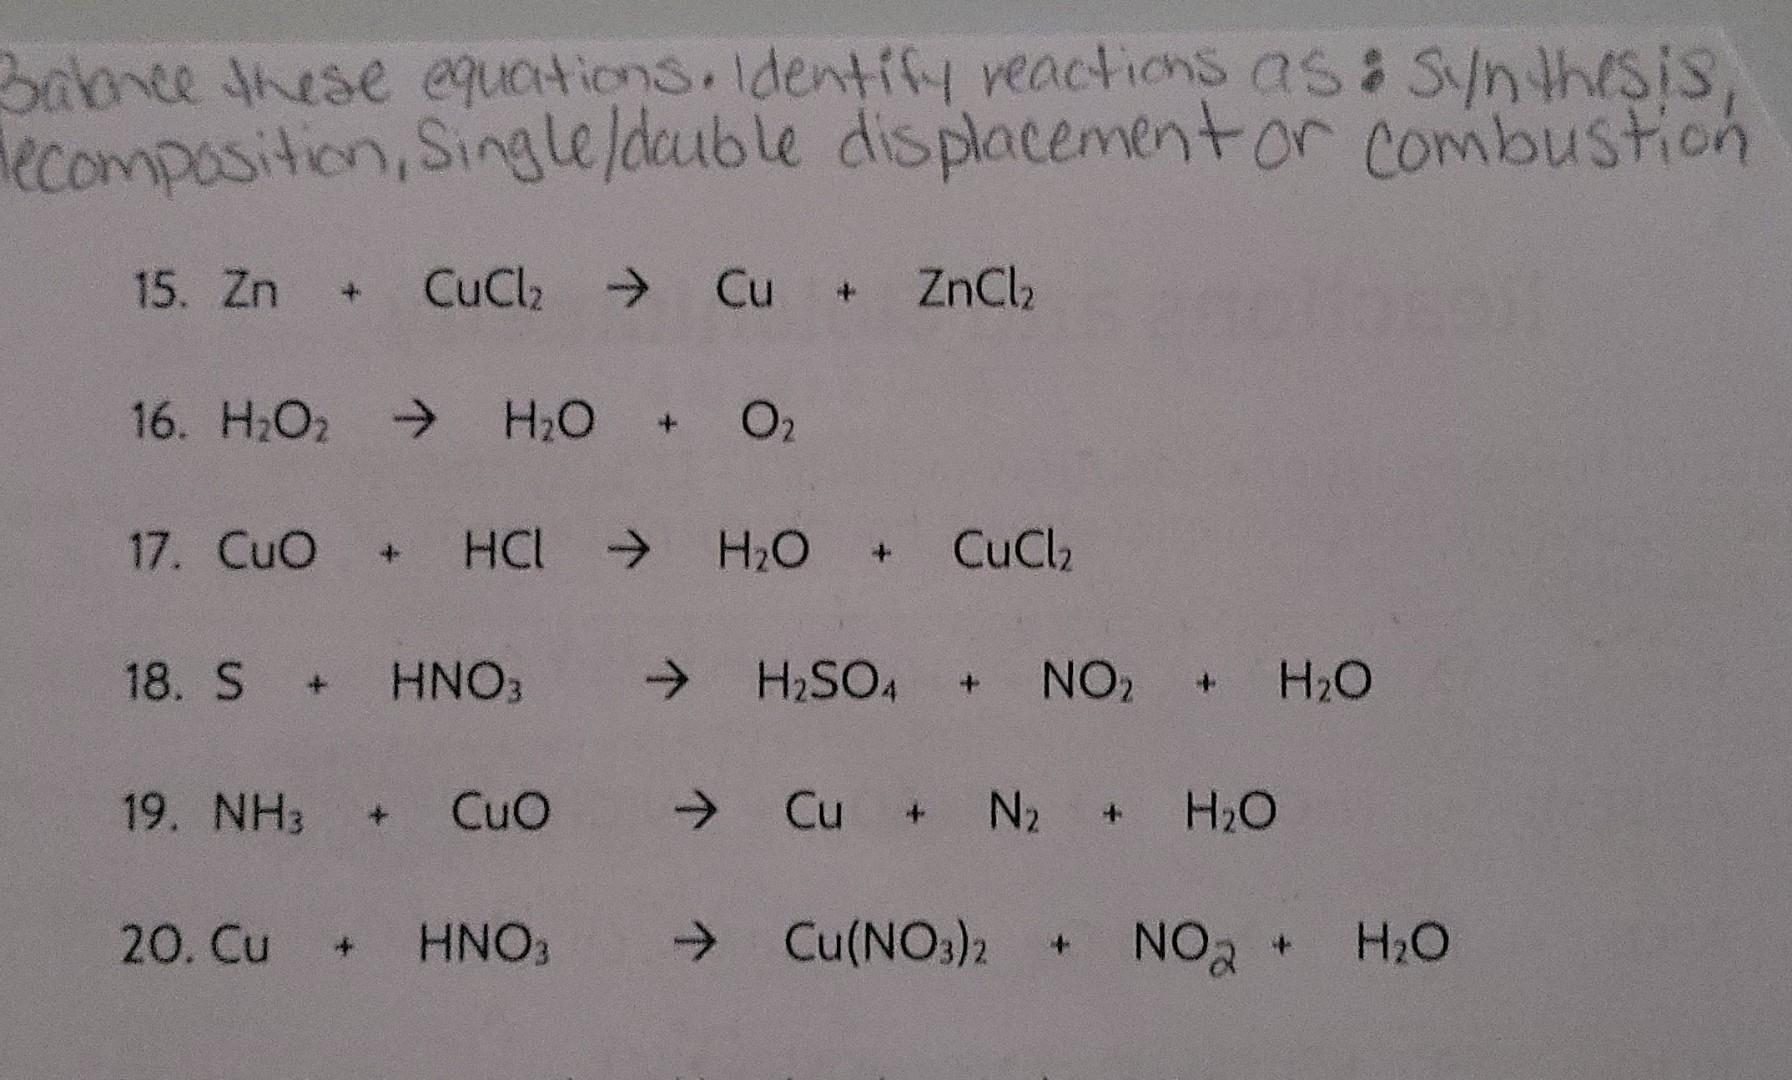 Balance these equations. Identify reactions as: Synthesis,
decomposition, Single/double displacement or combustion
15. Zn + CuCl₂ → Cu + ZnCl₂
16. H₂O₂ → H₂O + O₂
17. CuO + HCl → H₂O + CuCl₂
18. S + HNO₃ → H₂SO₄ + NO₂ + H₂O
19. NH₃ + CuO → Cu + N₂ + H₂O
20. Cu + HNO₃ → Cu(NO₃)₂ + NO₂ + H₂O